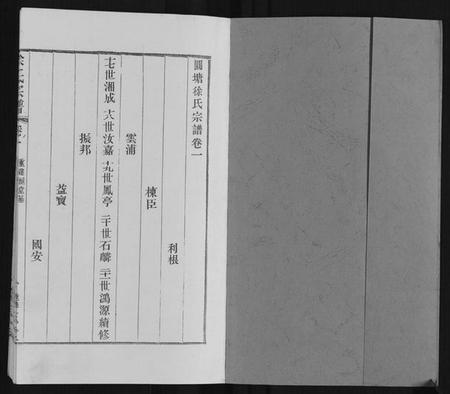 圓塘徐氏宗譜卷一
利根
棟臣
雲浦
十七世湘成 十八世汝嘉 十九世鳳亭 二十世石麟 二十一世鴻源續修
振邦
益寶
國安
徐氏宗譜
卷一